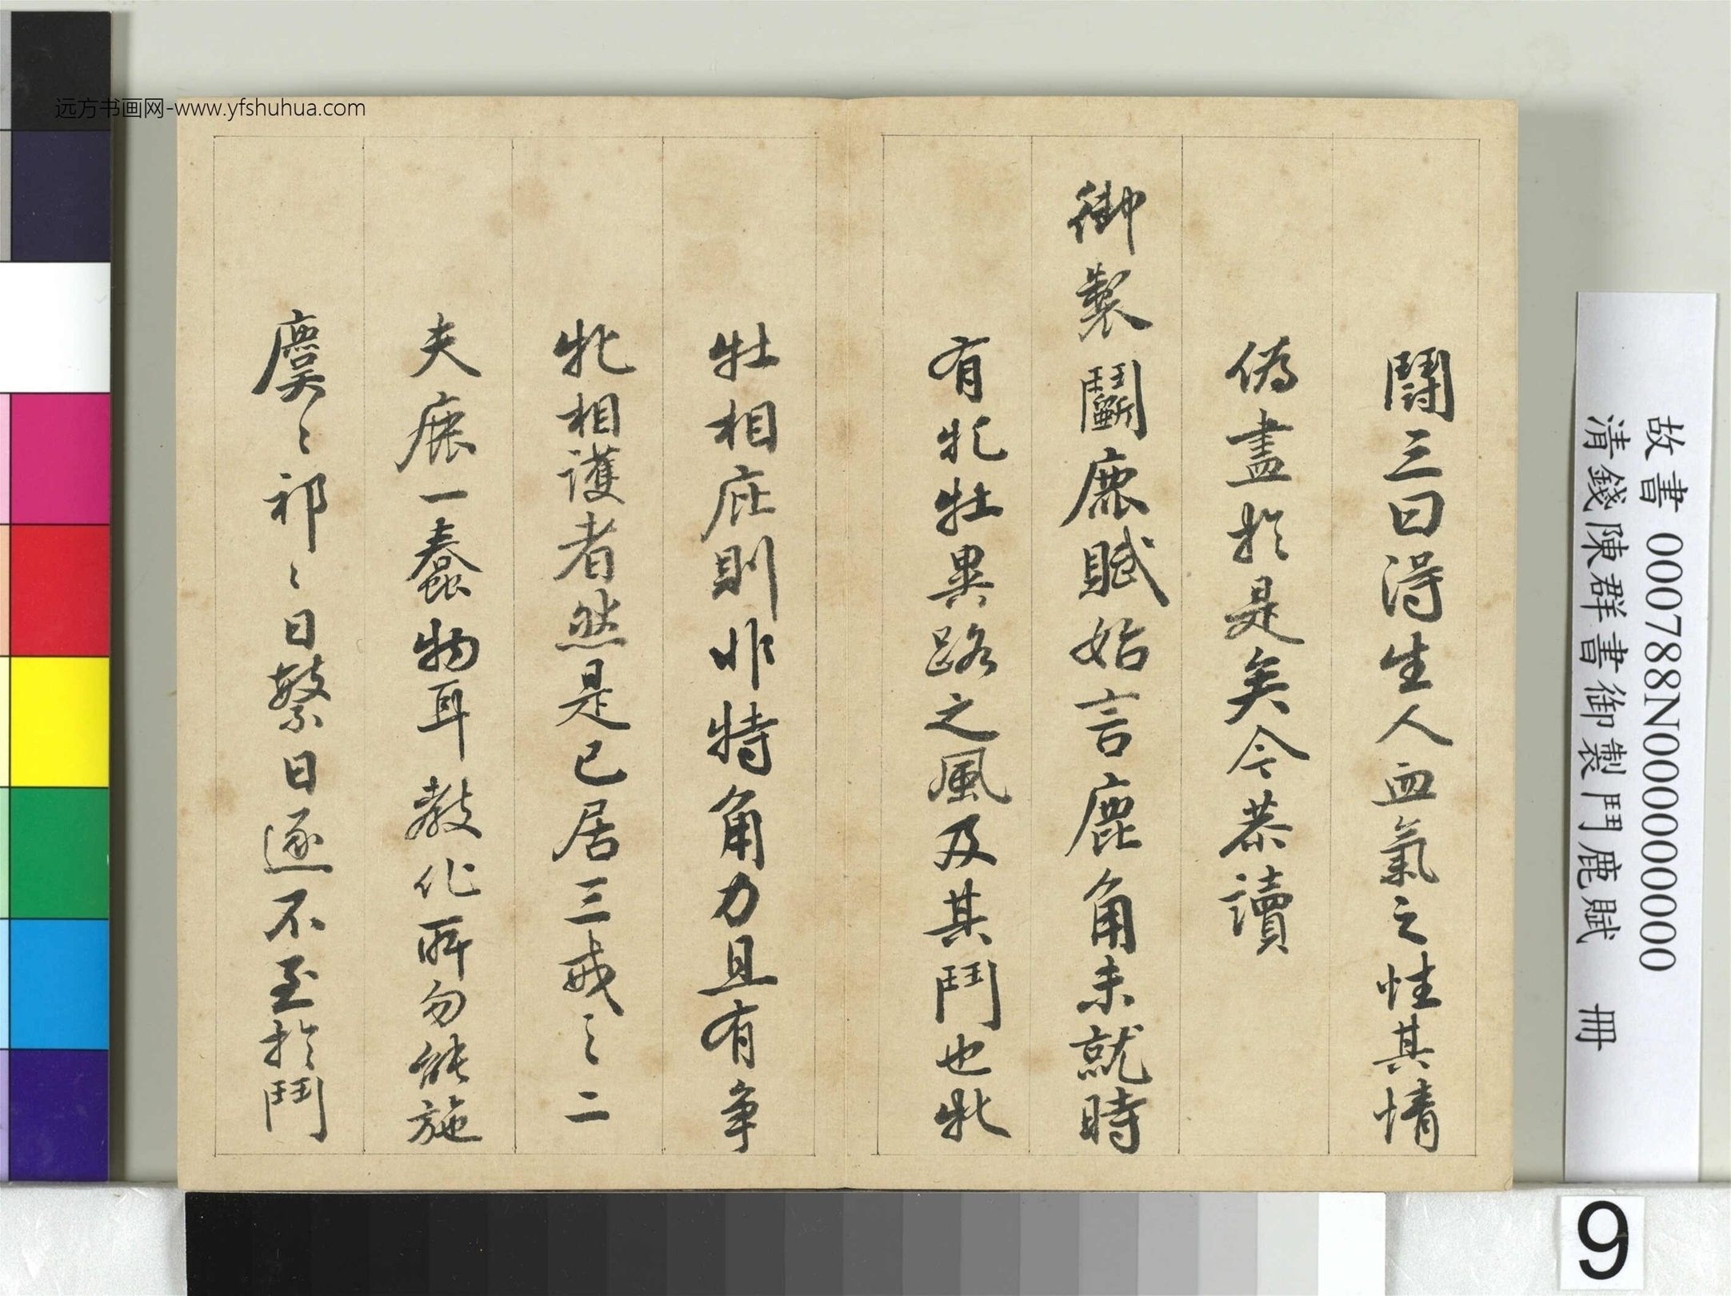 鬪三曰得生人血氣之性其情
偽盡於是矣今恭讀
御製鬭鹿賦始言鹿角未就時
有牝牡異路之風及其鬥也牝
牡相庇則非特角力且有爭
牝相護者然是已居三戒之二
夫鹿一蠢物耳教化所勿能施
麌〻祁〻日繁日逐不至於鬥
故書 000788N000000000
清錢陳群書御製鬥鹿賦 冊
9
远方书画网-www.yfshuhua.com